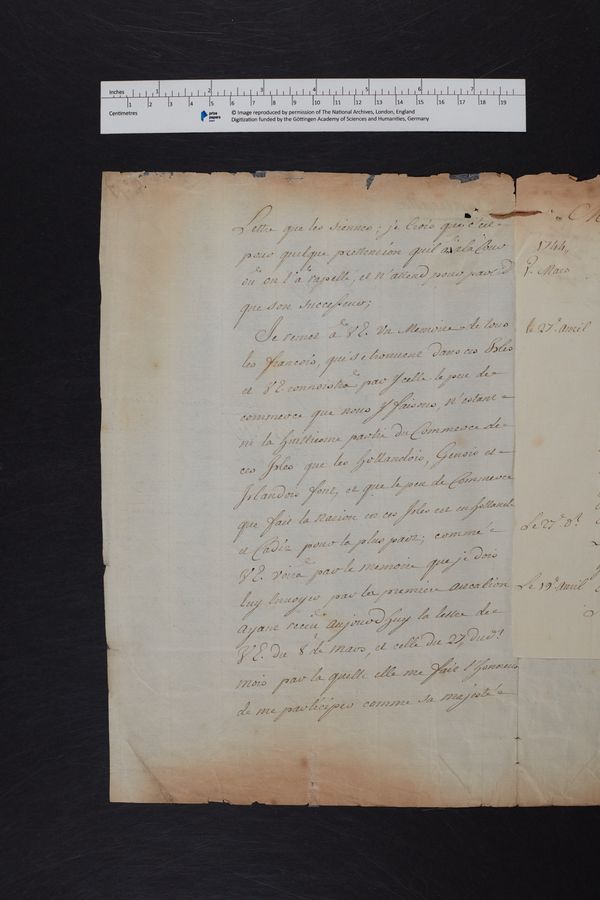 Inches 1 2 3 4 5 6 7
Centimetres 1 2 3 4 5 6 7 8 9 10 11 12 13 14 15 16 17 18 19
prize papers
© Image reproduced by permission of The National Archives, London, England
Digitization funded by the Göttingen Academy of Sciences and Humanities, Germany
Lettre que les siennes; je Crois que c'est
pour quelque prettention quil a a la Cour
où on l'a rapellé, et n'attend pour partir
que son successeur;
Je remet a VE. Un Memoire de tous
les francois, qui se trouvent dans ces Isles
et VE. connoistra par Ycelle le peu de
commerce que nous Y faisons, n'estant
ni la huittieme partie du Commerce de
ces Isles que les hollandois, Genois et
Irlandois font, et que le peu de Commerce
que fait la Nation en ces Isles est en hollande
et Cadiz pour la plus part; comme
VE. voira par le memoire que je dois
luy Envoyer par la premiere occation
ayant receu aujourd'huy la lettre de
VE. du 8 de mars, et celle du 27 dud.t
mois par la quelle elle me fait l'honneur
de me participer comme sa majesté
1744
Mars
le 27.e avril
Le 27.e d.t
Le 19.e avril